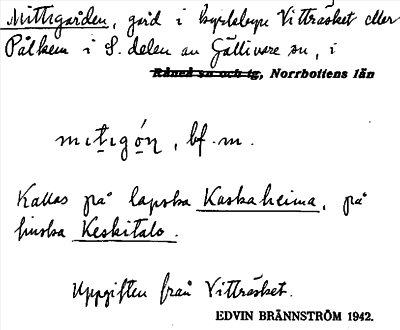 Mittigården, gård i byrlabyn Vitträsket eller
Pålkem i S. delen av Gällivare sn, i
Råneå sn och tg, Norrbottens län
mıtıgón, bf. m.
Kallas på lapska Kaskaheima, på
finska Keskitalo.
Uppgiften från Vitträsket.
EDVIN BRÄNNSTRÖM 1942.